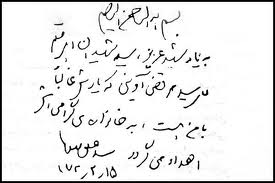 بسم الله الرحمن الرحیم
به یاد شهید عزیز، سید شهیدان اهل قلم
سید مرتضی آوینی که یادش غالباً
با من است، به خانواده‌ی گرامی‌اش
اهداء می‌گردد
۷۲،۲،۱۵